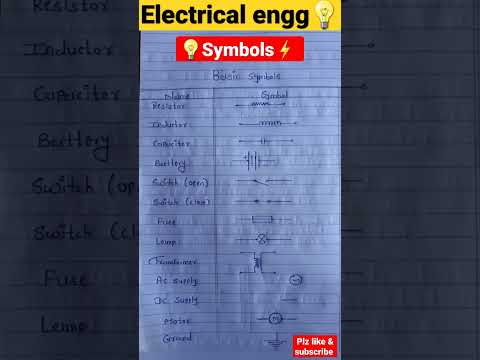 Electrical engg
Symbols
Basic symbols
Name Symbol
Resistor
Inductor
Capacitor
Battery
Switch (open)
Switch (close)
Fuse
Lemp
Transformer
AC supply
DC supply
Motor
M
Ground
Resistor
Inductor
Capacitor
Battery
Switch (op
Switch (cl
Fuse
Lemp
Plz like &
subscribe